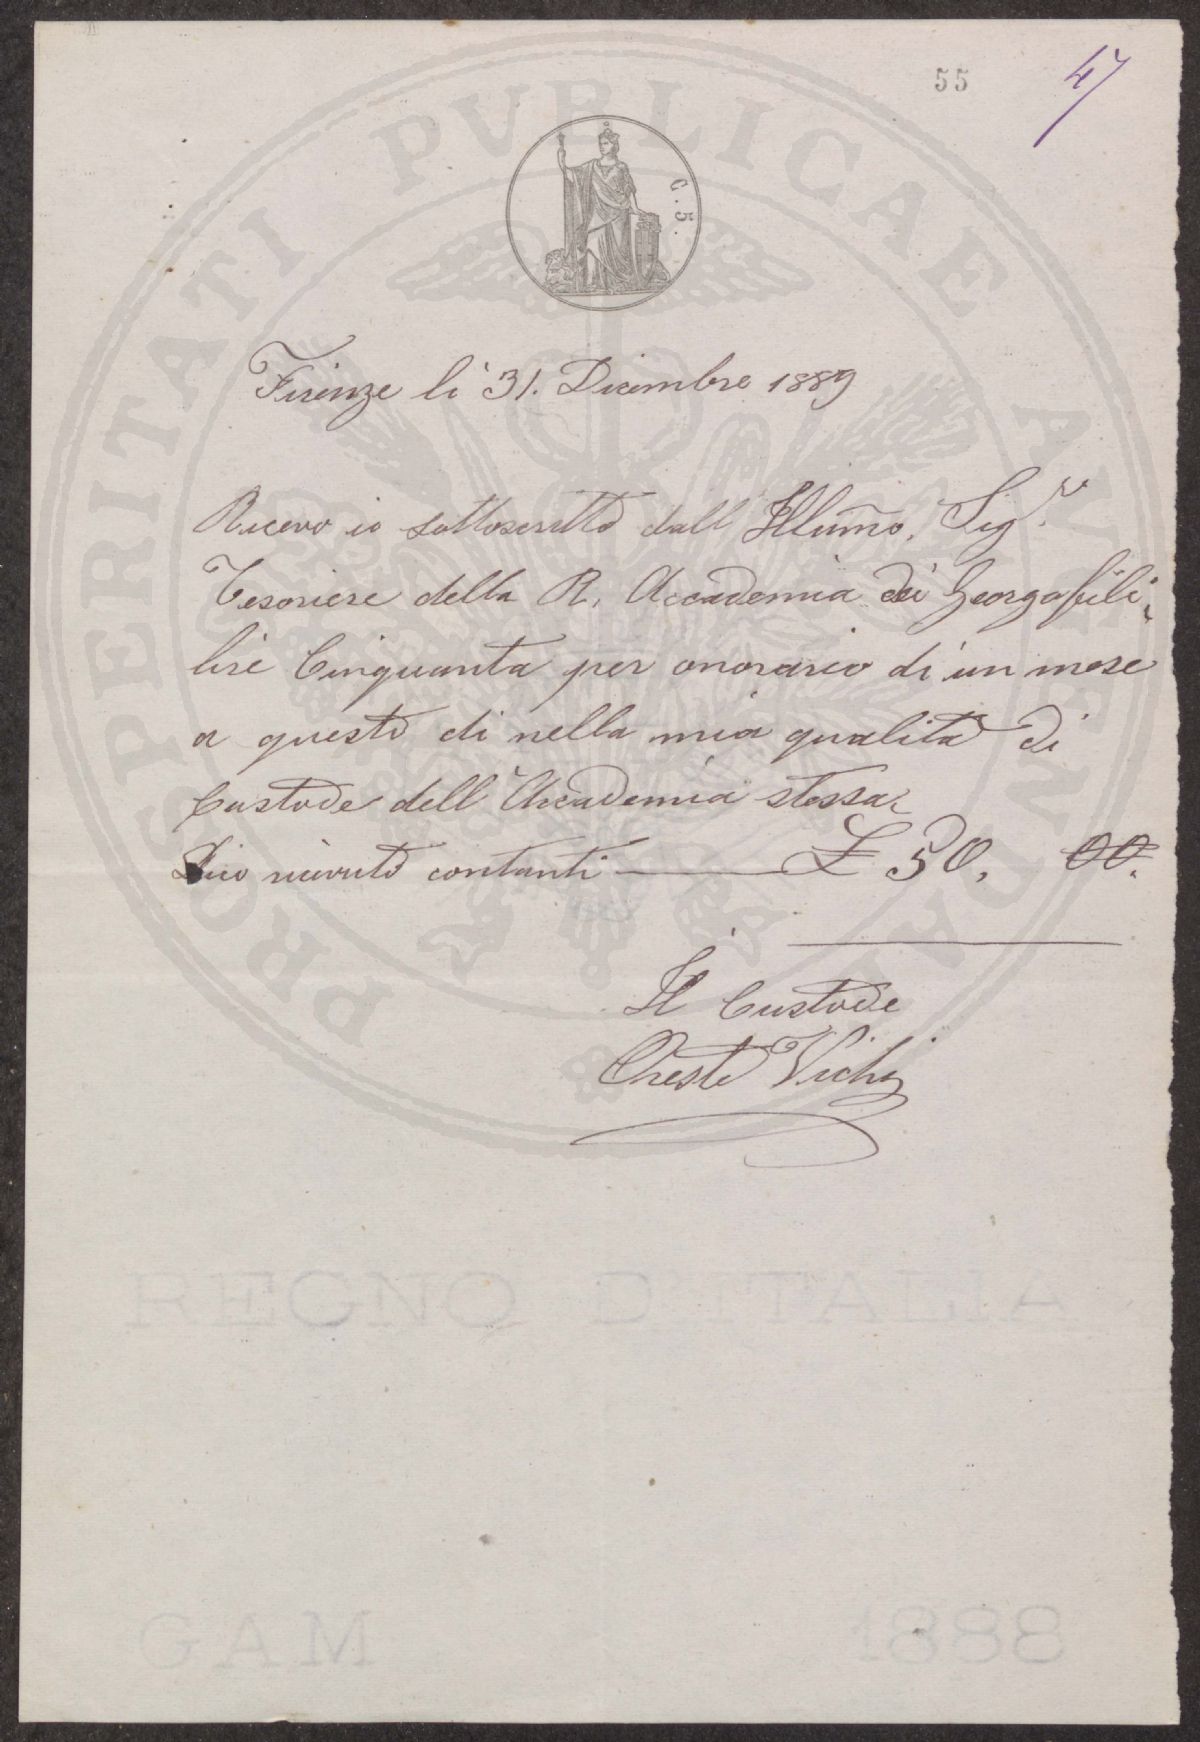 55
47
C. 5.
PROSPERITATI PVBLICAE AVGENDAE
Firenze lì 31. Dicembre 1889
Ricevo io sottoscritto dall' Illumo. Sigr.
Tesoriere della R. Accademia dei Georgofili
lire Cinquanta per onorario di un mese
a questo dì nella mia qualità di
Custode dell' Accademia stessa
Dico ricevuto contanti £ 50, 00.
Il Custode
Oreste Vichi
REGNO D'ITALIA
GAM 1888